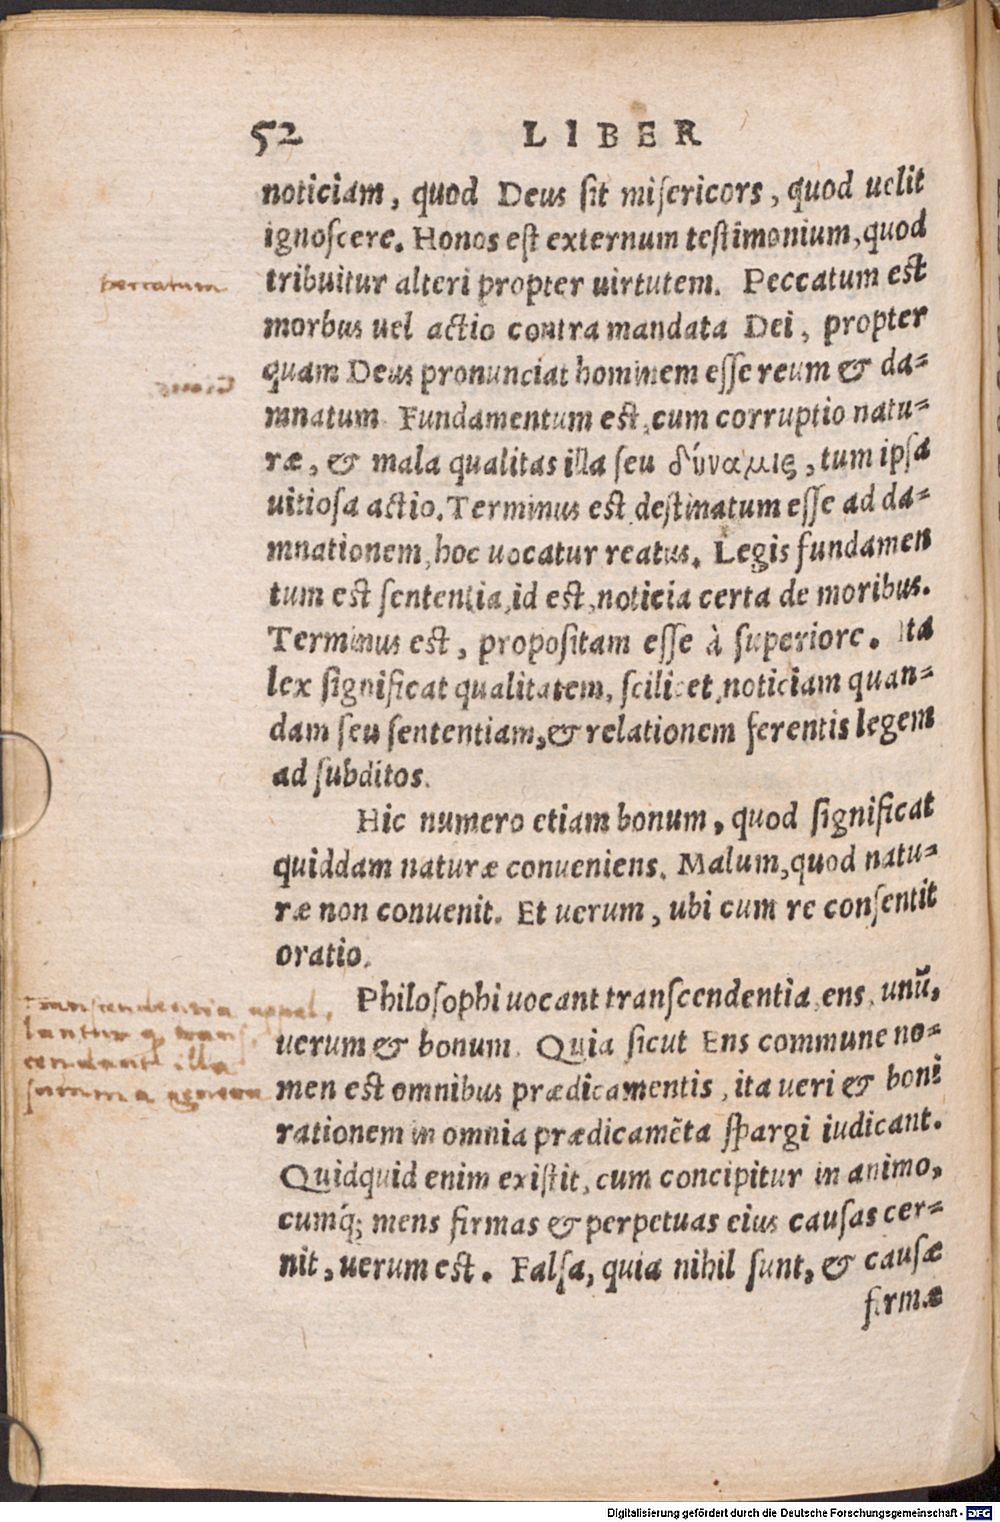 52 LIBER
noticiam, quod Deus sit misericors, quod uelit
ignoscere. Honos est externum testimonium, quod
tribuitur alteri propter uirtutem. Peccatum est
peccatum
morbus uel actio contra mandata Dei, propter
quam Deus pronunciat hominem esse reum & da=
mnatum. Fundamentum est, cum corruptio natu=
ræ, & mala qualitas illa seu δύναμις, tum ipsa
uitiosa actio. Terminus est destinatum esse ad da=
mnationem, hoc uocatur reatus. Legis fundamen
tum est sententia, id est, noticia certa de moribus.
Terminus est, propositam esse à superiore. Ita
lex significat qualitatem, scilicet, noticiam quan=
dam seu sententiam, & relationem ferentis legem
ad subditos.
Hic numero etiam bonum, quod significat
quiddam naturæ conueniens. Malum, quod natu=
ræ non conuenit. Et uerum, ubi cum re consentit
oratio.
Philosophi uocant transcendentia, ens, unũ,
uerum & bonum. Quia sicut Ens commune no=
men est omnibus prædicamentis, ita ueri & boni
rationem in omnia prædicamẽta spargi iudicant.
Quidquid enim existit, cum concipitur in animo,
cumq́; mens firmas & perpetuas eius causas cer=
nit, uerum est. Falsa, quia nihil sunt, & causæ
firmæ
transcendentia appel,
lantur q trans,
cendant illa
summa genera
Digitalisierung gefördert durch die Deutsche Forschungsgemeinschaft - DFG